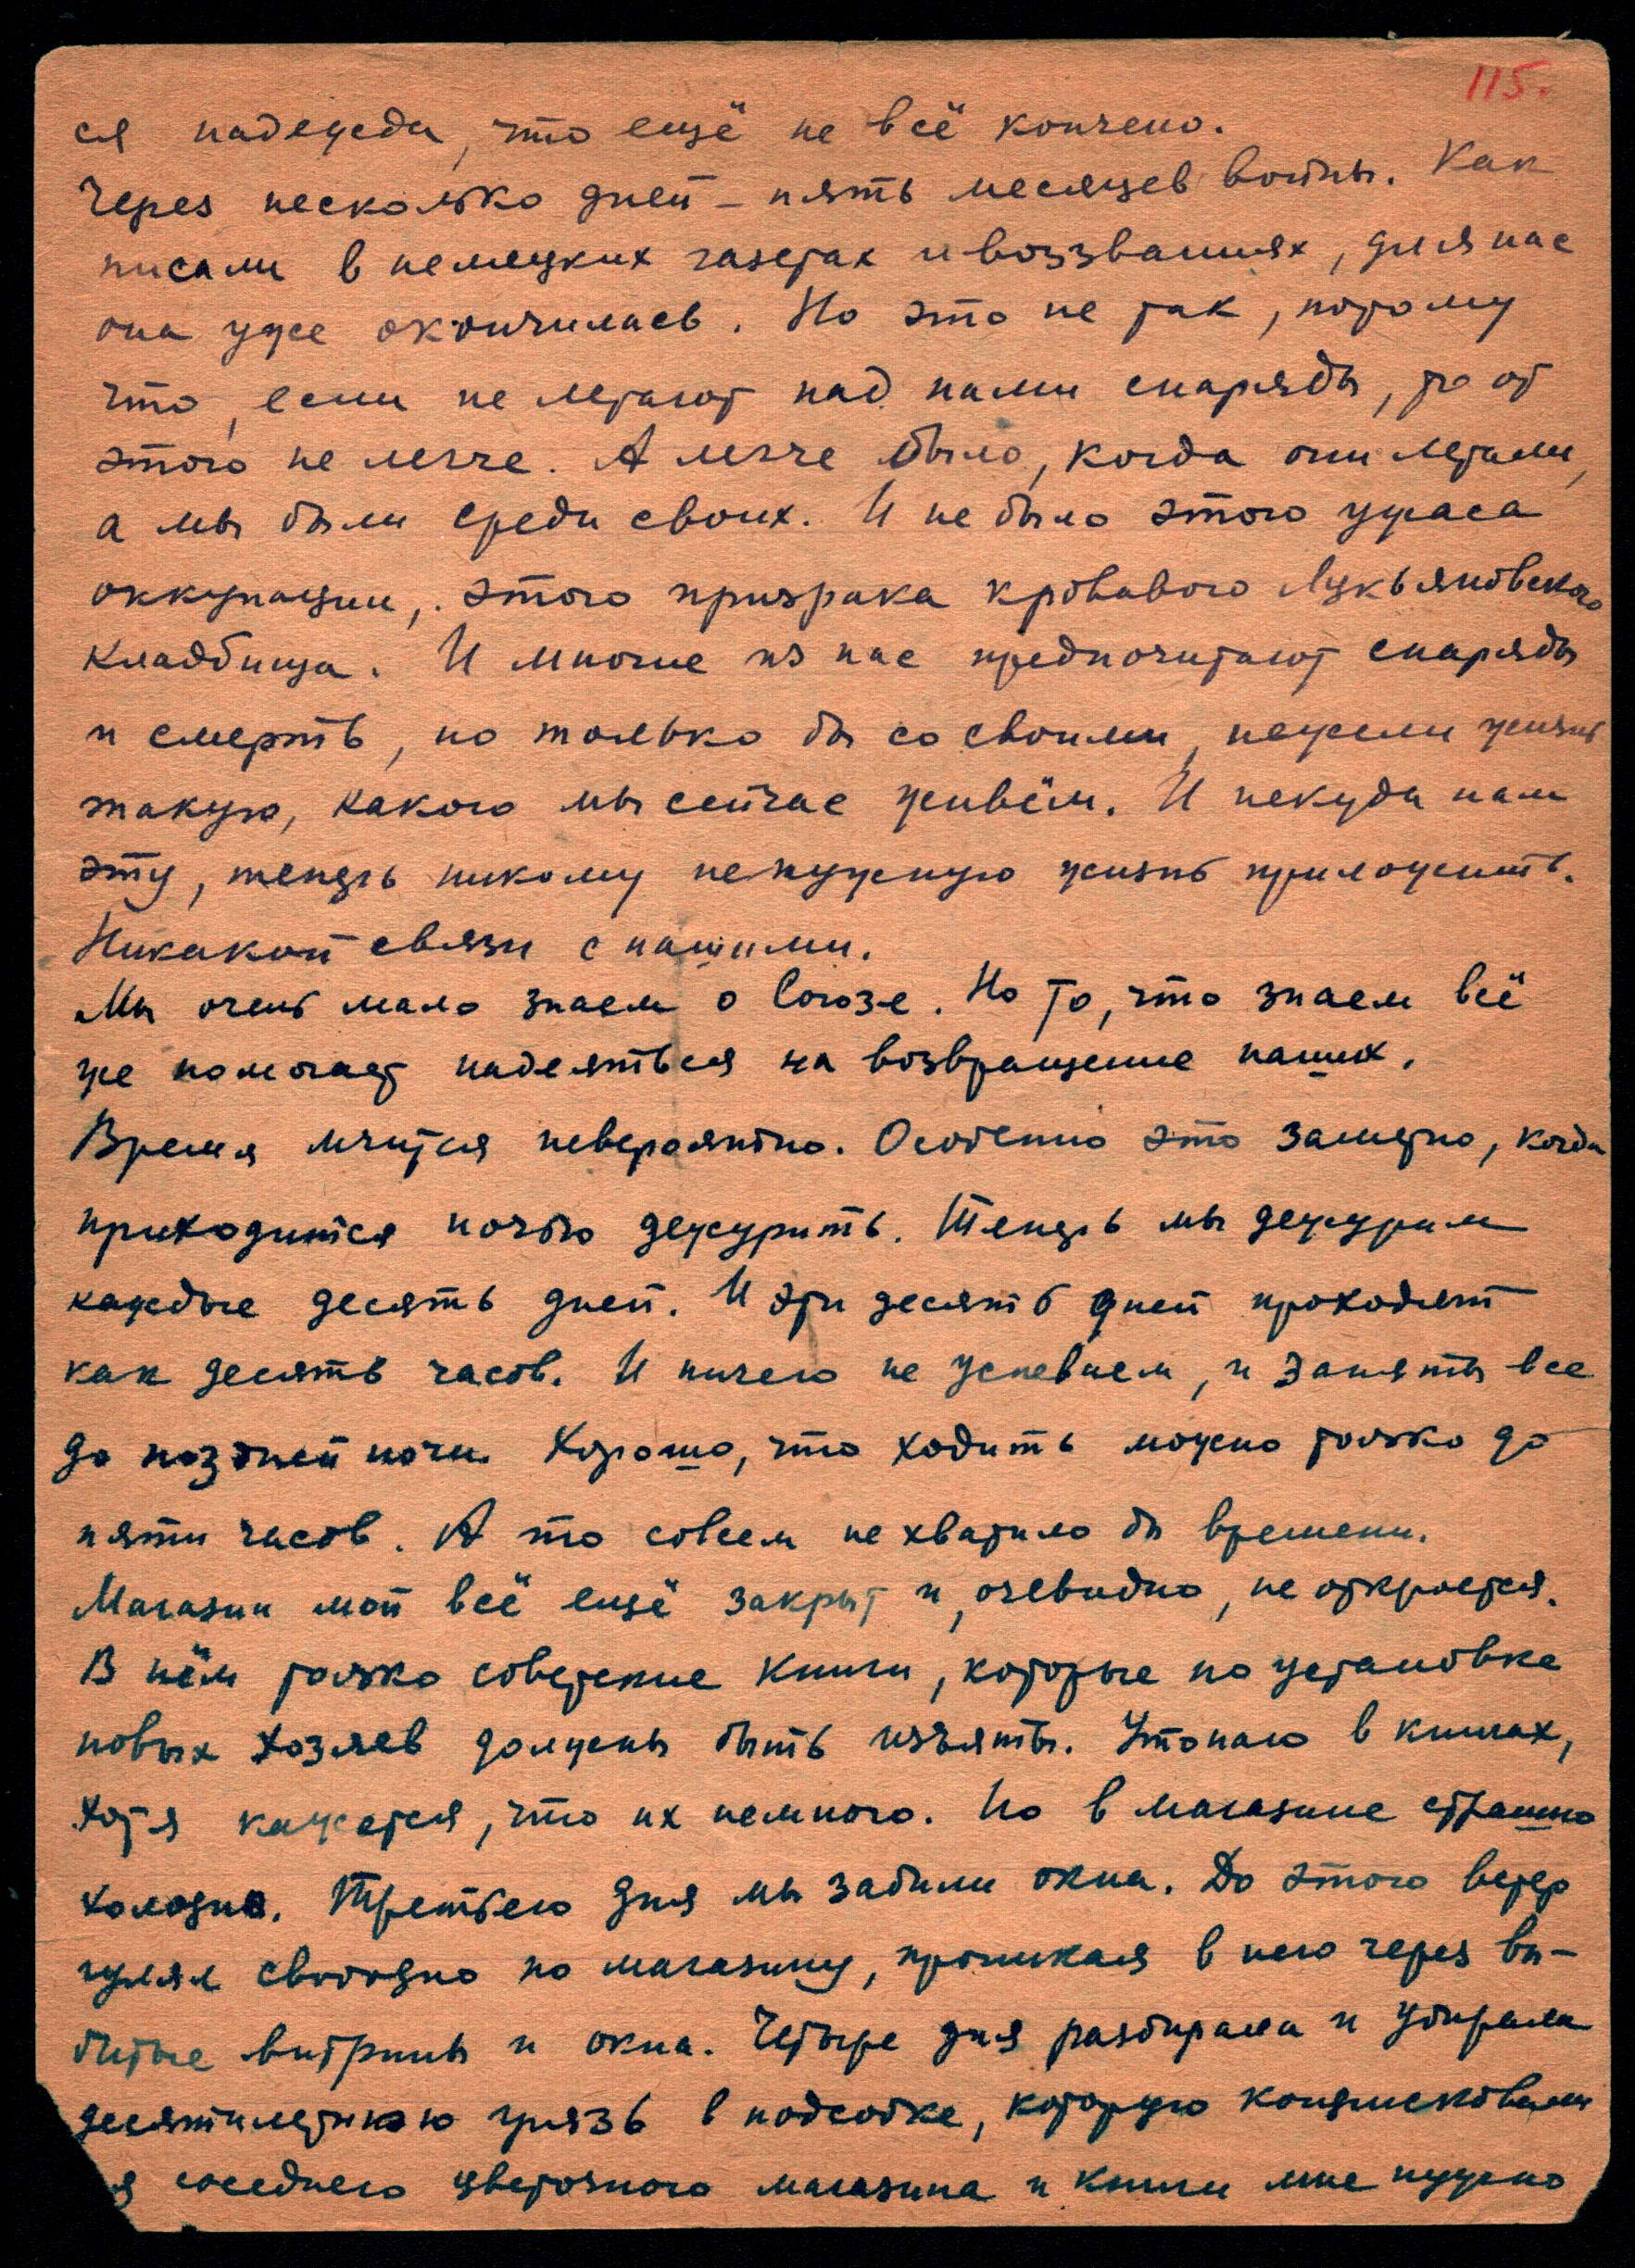 115.
ся надежда, что ещё не всё кончено.
Через несколько дней – пять месяцев войны. Как
писали в немецких газетах и воззваниях, для нас
она уже окончилась. Но это не так, потому
что, если не летают над нами снаряды, то от
этого не легче. А легче было, когда они летали,
а мы были среди своих. И не было этого ужаса
оккупации, этого призрака кровавого Лукьяновского
кладбища. И многие из нас предпочитают снаряды
и смерть, но только бы со своими, нежели жизнь
такую, какою мы сейчас живём. И некуда нам
эту, теперь никому ненужную жизнь приложить.
Никакой связи с нашими.
Мы очень мало знаем о Союзе. Но то, что знаем всё
же помогает надеяться на возвращение наших.
Время мчится невероятно. Особенно это заметно, когда
приходится ночью дежурить. Теперь мы дежурим
каждые десять дней. И эти десять дней проходят
как десять часов. И ничего не успеваем, и заняты все
до поздней ночи. Хорошо, что ходить можно только до
пяти часов. А то совсем не хватило бы времени.
Магазин мой всё ещё закрыт и, очевидно, не откроется.
В нём только советские книги, которые по установке
новых хозяев должны быть изъяты. Утопаю в книгах,
хотя кажется, что их немного. Но в магазине страшно
холодно. Третьего дня мы забили окна. До этого ветер
гулял свободно по магазину, проникая в него через вы-
битые витрины и окна. Четыре дня разбирала и убирала
десятилетнюю грязь в подсобке, которую конфисковали
я соседнего цветочного магазина и книги мне нужно